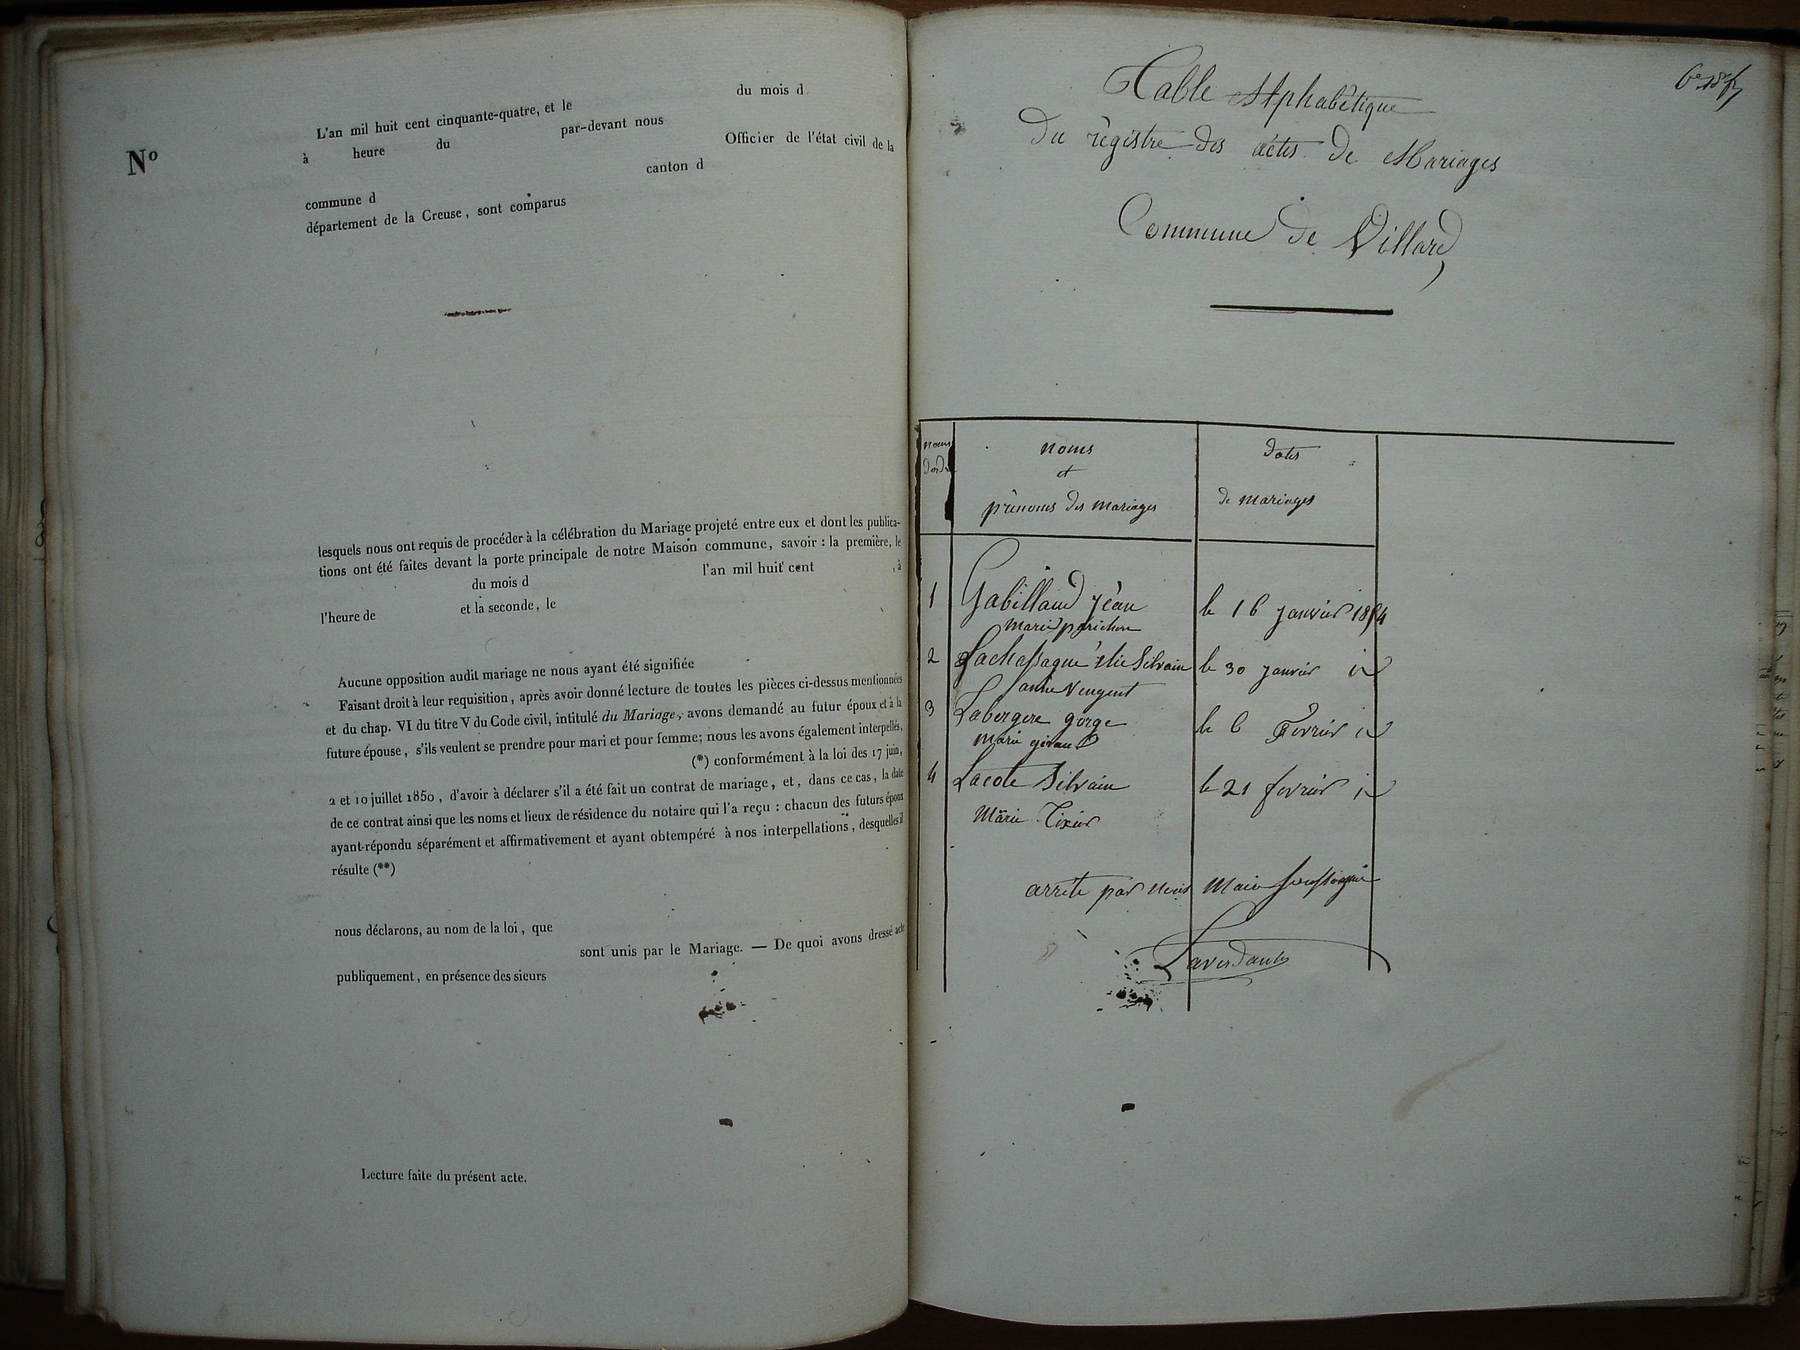 Nº
du mois d
L'an mil huit cent cinquante-quatre, et le
à heure du par-devant nous
Officier de l'état civil de la
commune d canton d
département de la Creuse, sont comparus
lesquels nous ont requis de procéder à la célébration du Mariage projeté entre eux et dont les publica-
tions ont été faites devant la porte principale de notre Maison commune, savoir : la première, le
du mois d l'an mil huit cent , à
l'heure de et la seconde, le
Aucune opposition audit mariage ne nous ayant été signifiée
Faisant droit à leur requisition, après avoir donné lecture de toutes les pièces ci-dessus mentionnées
et du chap. VI du titre V du Code civil, intitulé du Mariage, avons demandé au futur époux et à la
future épouse, s'ils veulent se prendre pour mari et pour femme; nous les avons également interpellés,
(*) conformément à la loi des 17 juin,
2 et 10 juillet 1850, d'avoir à déclarer s'il a été fait un contrat de mariage, et, dans ce cas, la date
de ce contrat ainsi que les noms et lieux de résidence du notaire qui l'a reçu : chacun des futurs époux
ayant répondu séparément et affirmativement et ayant obtempéré à nos interpellations, desquelles il
résulte (**)
nous déclarons, au nom de la loi, que
sont unis par le Mariage. — De quoi avons dressé acte
publiquement, en présence des sieurs
Lecture faite du présent acte.
Table Alphabètique
Du règistre des actes de Mariages
Commune de Villard
noms et prènoms des mariages
dates de mariages
1 Gabillaud jèan le 16 janvier 1854
marie perichon
2 Lachassagne élie Silvain le 30 janvier id
anne Vengent
3 Labergere gorge le 6 Fevrier id
Marie giraud
4 Lacote Silvain le 21 fevrier id
Marie Tixier
arrete par nous Maire soussigné
Laverdant